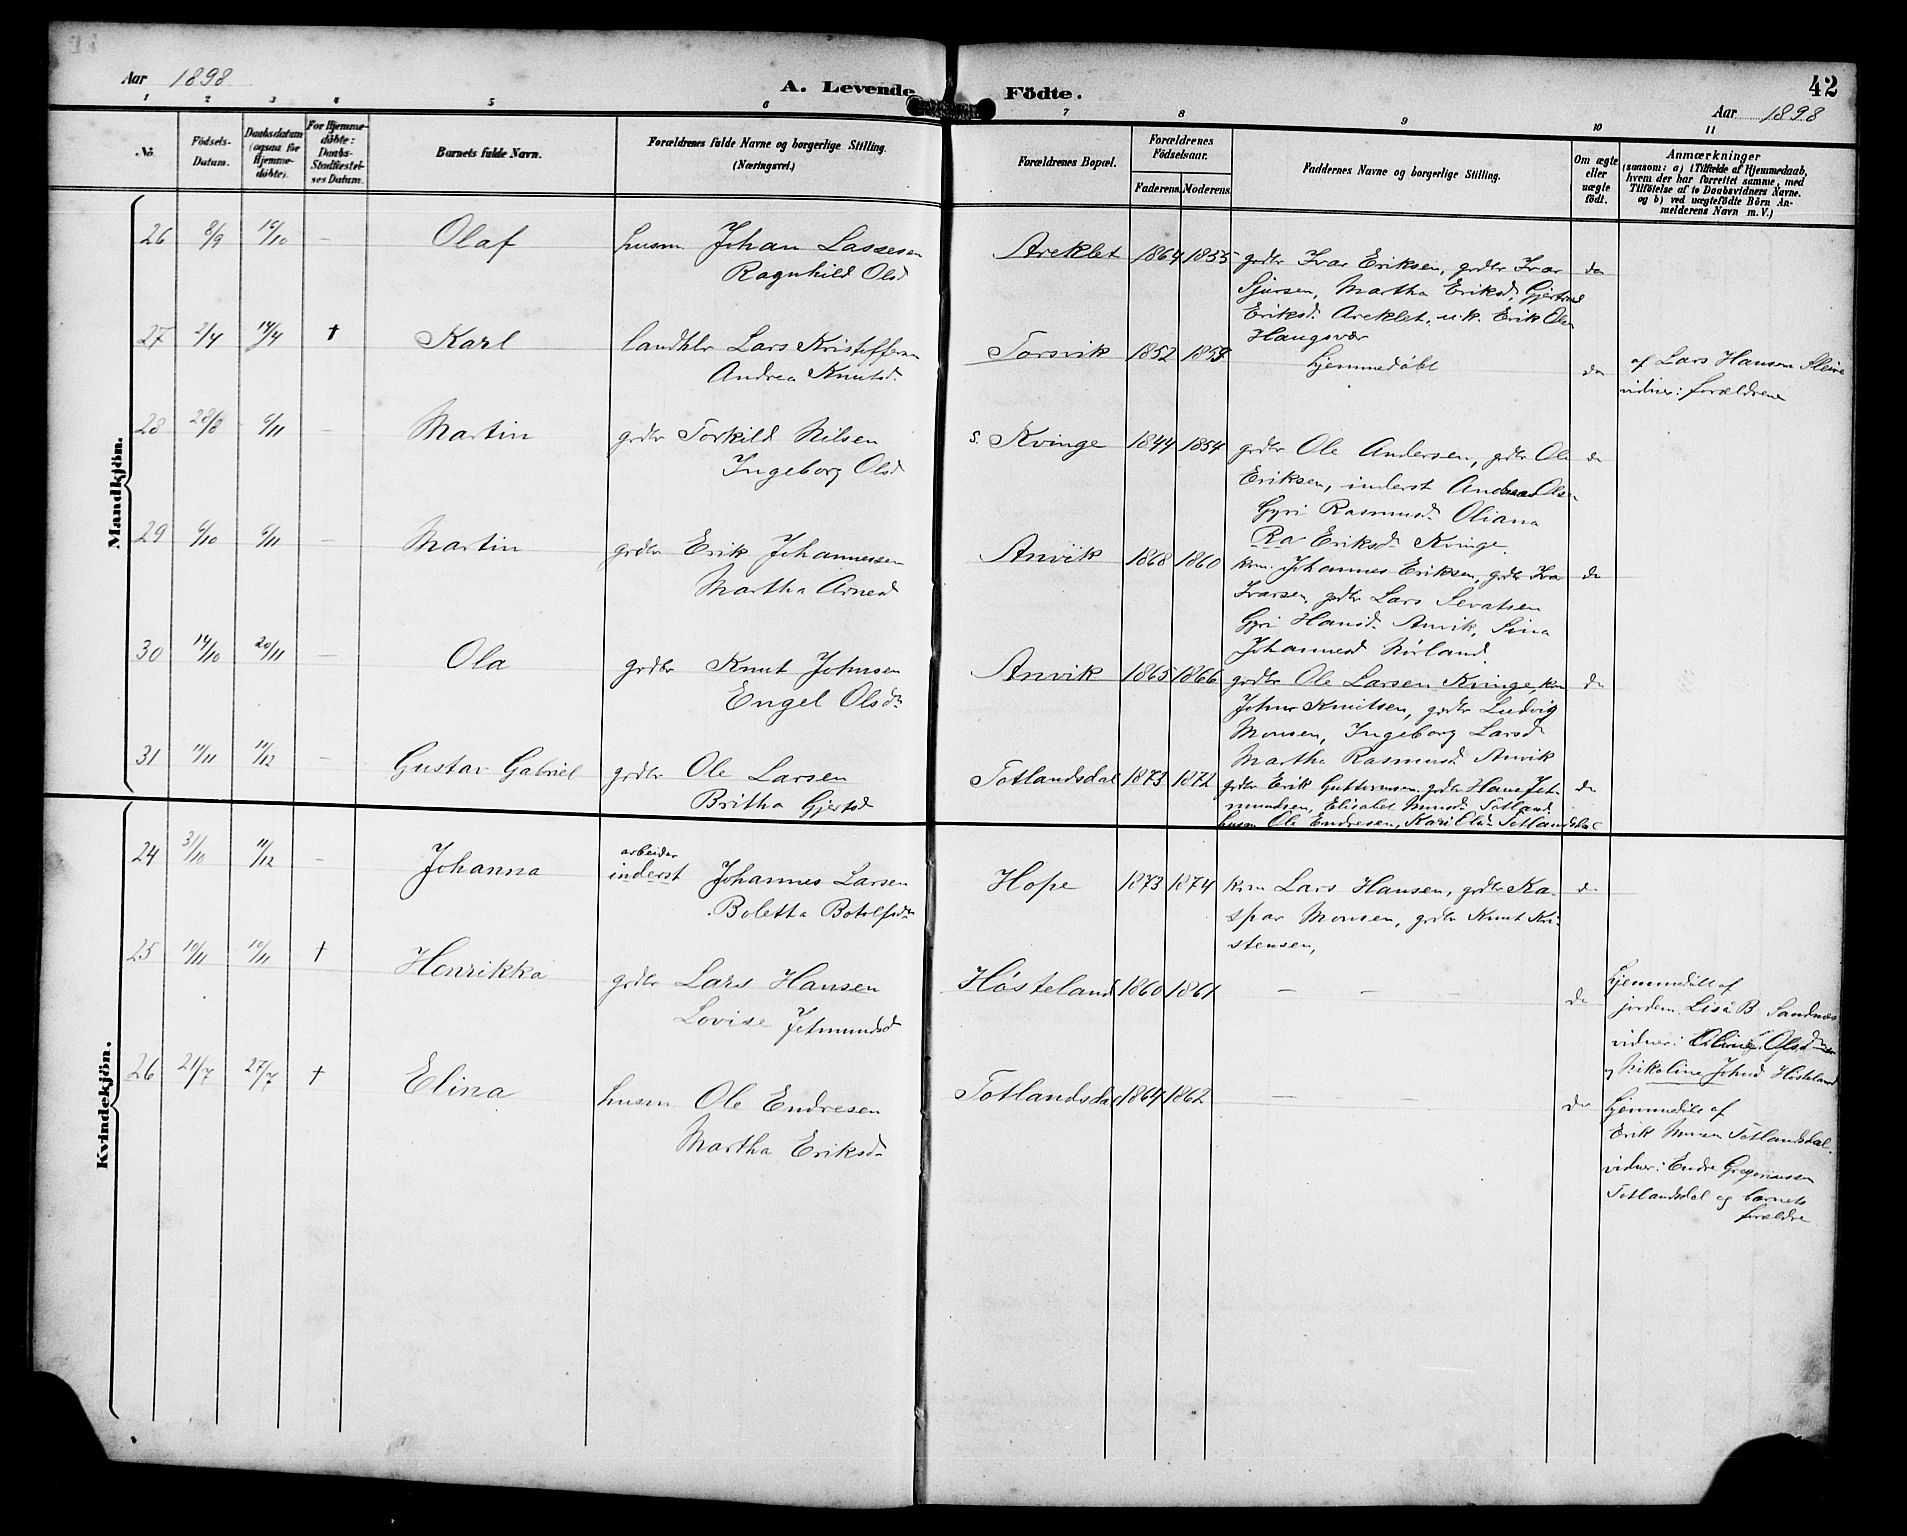 Aar 1898
A. Levende Födte.
42
Aar 1898
1 2 3 4 5 6 7 8 9 10 11
No.
Födsels-Datum.
Daabsdatum (ogsaa for Hjemmedöbte).
For Hjemmedöbte: Daabs-Stadfæstelses Datum.
Barnets fulde Navn.
Forældrenes fulde Navne og borgerlige Stilling.
(Næringsvei.)
Forældrenes Bopæl.
Forældrenes Födselsaar.
Faderens. Moderens.
Faddernes Navne og borgerlige Stilling.
Om ægte eller uægte födt.
Anmærkninger
(saasom: a) i Tilfælde af Hjemmedaab,
hvem der har forrettet samme, med
Tilföielse af to Daabsvidners Navne.
og b) ved uægtefödte Börn An-
melderens Navn m. V.)
Mandkjön.
26 8/9 16/10 - Olaf husm Johan Lassesen
Ragnhild Olsd
Areklet 1864 1855 grdbr Ivar Eriksen, grdbr Ivar
Sjursen, Martha Eriksd, Gjertrud
Eriksd. Areklet, u.k. Erik Olsen
Haugsvær
do
27 2/4 14/4 † Karl landhlr Lars Kristoffersen
Andrea Knutsd.
Torsvik 1852 1858 hjemmedøbt do
af Lars Hansen Sleire
vidner: forældrene
28 28/8 6/11 - Martin grdbr Torkild Nilsen
Ingeborg Olsd
s. Kvinge 1844 1854 grdbr Ole Andersen, grdbr Ole
Eriksen, inderst Andreas Olsen
Gyri Rasmusd. Oliana
Ra Eriksd. Kvinge.
do
29 6/10 6/11 - Martin grdbr Erik Johannesen
Martha Arnesd
Anvik 1868 1860 kom. Johannes Eriksen, grdbr Ivar
Ivarsen, grdbr Lars Sevatsen
Gyri Hansd. Anvik, Sina
Johannesd Nørland.
do
30 14/10 20/11 - Ola grdbr Knut Johnsen
Engel Olsdr
Anvik 1865 1866 grdbr Ole Larsen Kvinge, km
John Knutsen, grdbr Ludvig
Monsen, Ingeborg Larsd
Martha Rasmusd Anvik
do
31 11/11 11/12 - Gustav Gabriel grdbr Ole Larsen
Britha Gjertsd
Totlandsdal 1873 1872 grdbr Erik Guttormsen grdbr Hans Jet-
mundsen, Elisabet Monsd. Totland
husm Ole Endresen, Kari Olsd. Totlandsdal
do
Kvindekjön.
24 31/10 11/12 - Johanna arbeider
inderst Johannes Larsen
Boletta Botolfsdr
Hope 1873 1874 kom Lars Hansen, grdbr Ka-
spar Monsen, grdbr Knut Kri-
stensen,
do
25 10/11 10/11 † Henrikka grdbr Lars Hansen
Lovise Jetmundsd
Høsteland 1860 1861 - - - do
hjemmedøbt af
jordem. Lisa B Sandnes
vidner: Olsd
og Nikoline Johnsd Høsteland
26 21/7 27/7 † Elina husm Ole Endresen
Martha Eriksdr
Totlandsdal 1864 1862 - - - do
hjemmedøbt af
Erik Monsen Totlandsdal.
vidner: Endre Gregoriussen
Totlandsdal og barnets
forældre